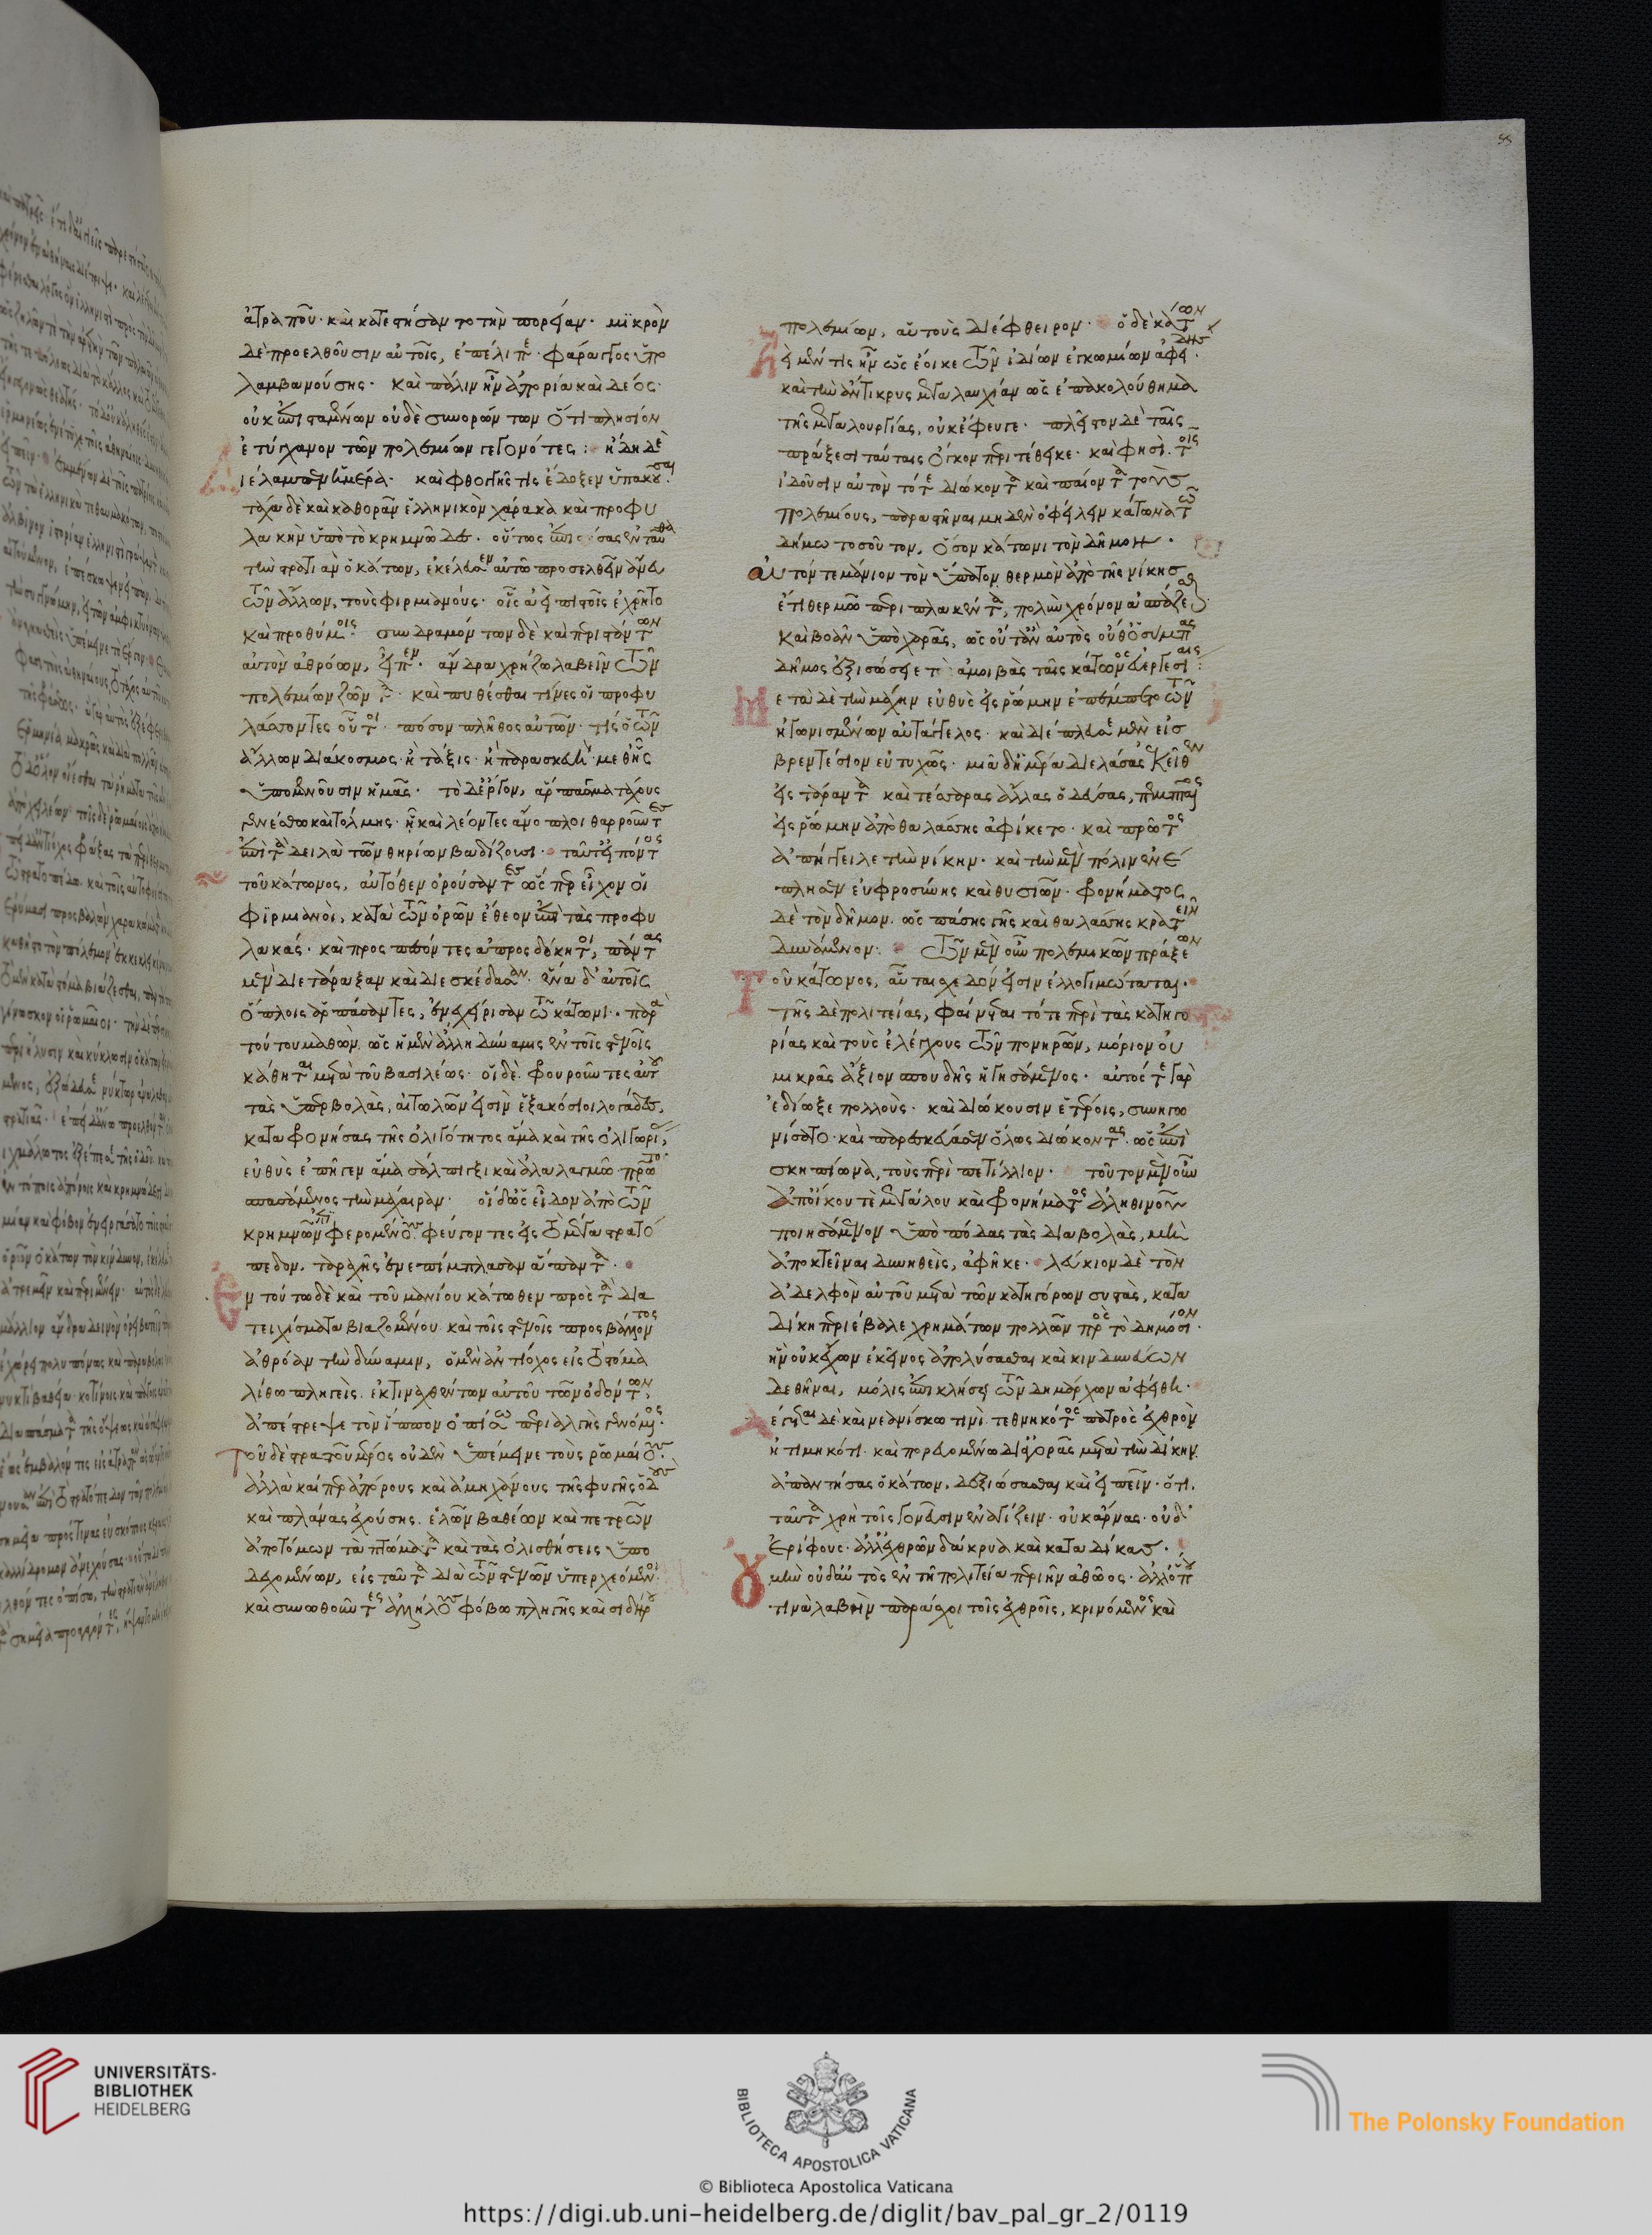 ἀτραποῦ· καὶ κατέστησαν το τὴν πορείαν· μϊκρὸν
δὲ προελθοῦσιν αὐτοῖς, ἐπέλιπε· φάραγγος ὑπο
λαμβανούσης· καὶ πάλιν ἦν ἀπορία καὶ δέος·
οὐκ ἐπισταμένων οὐδὲ συνορώντων ὅτι πλησίον
ἐτύγχανον τῶν πολεμίων γεγονότες: ἤδη δὲ
διέλαμπεν ἡμέρα· καὶ φθογγῆς τις ἔδοξεν ὑπακοῦσαι·
τάχα δὲ καὶ καθορᾶν ἑλληνικὸν χάρακα καὶ προφυ
λακὴν ὑπὸ τὸ κρημνῶδες· οὕτως ἐπιστήσας ἐνταῦθα
τὴν στρατιὰν ὁ κάτων, ἐκέλευσεν αὐτῶ προσελθεῖν ἄνευ
τῶν ἄλλων, τοὺς φιρμιανούς· οἷς ἀεὶ πιστοῖς ἐχρῆτο
καὶ προθύμοις· συνδραμόντων δὲ καὶ περιστάντων
αὐτὸν ἀθρόων, εἶπεν· ἄνδρα χρήζω λαβεῖν τῶν
πολεμίων ζῶντα· καὶ πυθέσθαι τίνες οἱ προφυ
λάσσοντες οὗτοι· πόσον πλῆθος αὐτῶν· τίς ὁ τῶν
ἄλλων διάκοσμος· ἢ τάξις· ἢ παρασκευὴ· μεθ ἧς
ὑπομένουσιν ἡμᾶς· τὸ δὲ ἔργον, ἅρπασμα τάχους
γενέσθω καὶ τόλμης· ἧ καὶ λέοντες ἄνοπλοι θαρροῦντες
ἐπὶ τὰ δειλὰ τῶν θηρίων βαδίζουσι· ταῦτ εἰπόντος
τοῦ κάτωνος, αὐτόθεν ὀρούσαντες ὥσπερ εἶχον οἱ
φϊρμιανοὶ, κατὰ τῶν ὀρῶν ἔθεον ἐπὶ τὰς προφυ
λακάς· καὶ προσπεσόντες ἀπροσδόκητοι, πάντας
μὲν διετάραξαν καὶ διεσκέδασαν· ἕνα δ' αὐτοῖς
ὅπλοις ἁρπάσαντες, ἐνεχείρισαν τῶ κάτωνι· παρὰ
τούτου μαθὼν, ὡς ἡ μὲν ἄλλη δύναμις ἐν τοῖς στενοῖς
κάθηται μετὰ τοῦ βασιλέως· οἱ δὲ φρουροῦντες αὐτοῦ
τὰς ὑπερβολὰς, αἰτωλῶν εἰσὶν ἑξακόσιοι λογάδες,
καταφρονήσας τῆς ὀλιγότητος ἅμα καὶ τῆς ὀλιγωρίας,
εὐθὺς ἐπῆγεν ἅμα σάλπιγξι καὶ ἀλαλαγμῶ πρῶτος
σπασάμενος τὴν μάχαιραν· οἱ δ ὡς εἶδον ἀπὸ τῶν
κρημνῶν ἐπιφερομένους· φεύγοντες εἰς τὸ μέγα στρατό
πεδον, ταραχῆς ἐνεπίμπλασαν ἅπαντας·
Ἐν τούτω δὲ καὶ τοῦ μανίου κάτωθεν πρὸς τὰ δια
τειχίσματα βιαζομένου καὶ τοῖς στενοῖς προσβάλλοντος
ἀθρόαν τὴν δύναμιν, ὁ μὲν ἀντίοχος εἰς τὸ στόμα
λίθω πληγεὶς· ἐκτιναχθέντων αὐτοῦ τῶν ὀδόντων,
ἀπέστρεψε τὸν ἵππον ὀπίσω περιαλγὴς γενόμενος·
Τοῦ δὲ στρατοῦ μέρος οὐδὲν ὑπέμεινε τοὺς ῥωμαίους·
ἀλλὰ καίπερ ἀπόρους καὶ ἀμηχάνους τῆς φυγῆς ὁδοὺς
καὶ πλάνας ἐχούσης· ἑλῶν βαθέων καὶ πετρῶν
ἀποτόμων τὰ πτώματα καὶ τὰς ὀλισθήσεις ὑπο
δεχομένων, εἰς ταῦτα διὰ τῶν στενῶν ὑπερχεόμενοι·
καὶ συνωθοῦντες ἀλλήλους φόβω πληγῆς καὶ σιδήρου
πολεμίων, αὑτοὺς διέφθειρον· ὁ δὲ κάτων
ἀεὶ μέν τις ἦν ὡς ἔοικε τῶν ἰδίων ἐγκωμίων ἀφειδής·
καὶ τὴν ἄντικρυς μεγαλαυχίαν ὡς ἐπακολούθημα
τῆς μεγαλουργίας, οὐκ ἔφευγε· πλεῖστον δὲ ταῖς
πράξεσι ταύταις ὄγκον περιτέθεικε· καὶ φησὶ· τοῖς
ἰδοῦσιν αὐτὸν τότε διώκοντα καὶ παίοντα τοὺς
πολεμίους, παραστῆναι μηδὲν ὀφείλειν κάτωνα τῶ
δήμω τοσοῦτον, ὅσον κάτωνι τὸν δῆμον·
αὐτόν τε μάνιον τὸν ὕπατον θερμὸν ἀπὸ τῆς νίκης
ἔτι θερμῶ περιπλακέντα, πολὺν χρόνον ἀσπάζεσθαι
καὶ βοᾶν ὑπὸ χαρᾶς, ὡς οὔτ ἂν αὐτὸς οὔθ ὁ σύμπας
δῆμος ἐξισώσειε τὰς ἀμοιβὰς ταῖς κάτωνος εὐεργεσίαις:
Μετὰ δὲ τὴν μάχην εὐθὺς εἰς ῥώμην ἐπέμπετο τῶν
ἠγωνισμένων αὐτάγγελος· καὶ διέπλευσε μὲν εἰς
βρεντέσιον εὐτυχῶς· μιᾶ δ ἡμέρα διελάσας ἐκεῖθεν
εἰς τάραντα καὶ τέσσαρας ἄλλας ὁδεύσας, πεμπταῖος
εἰς ῥώμην ἀπὸ θαλάσσης ἀφίκετο· καὶ πρῶτος
ἀπήγγειλε τὴν νίκην· καὶ τὴν μὲν πόλιν ἐνέ
πλησεν εὐφροσύνης καὶ θυσιῶν· φρονήματος
δὲ τὸν δῆμον· ὡς πάσης γῆς καὶ θαλάσσης κρατεῖν
δυνάμενον: Τῶν μὲν οὖν πολεμικῶν πράξεων
Τοῦ κάτωνος, αὗται σχεδόν εἰσιν ἐλλογιμώταται·
τῆς δὲ πολιτείας, φαίνεται τό τε περὶ τὰς κατηγο
ρίας καὶ τοὺς ἐλέγχους τῶν πονηρῶν, μόριον οὐ
μικρᾶς ἄξιον σπουδῆς ἡγησάμενος· αὐτός τε γὰρ
ἐδίωξε πολλοὺς· καὶ διώκουσιν ἑτέροις, συνηγω
νίσατο· καὶ παρεσκεύασεν ὅλως διώκοντας· ὡς ἐπὶ
σκηπίωνα, τοὺς περὶ πετίλλιον· τοῦτον μὲν οὖν
ἀπ οἴκου τὲ μεγάλου καὶ φρονήματος ἀληθινοῦ
ποιησάμενον ὑπὸ πόδας τὰς διαβολὰς, μὴ
ἀποκτεῖναι δυνηθεὶς, ἀφῆκε· λεύκιον δὲ τὸν
ἀδελφὸν αὐτοῦ μετὰ τῶν κατηγόρων συστὰς, κατα
δίκη περιέβαλε χρημάτων πολλῶν πρὸς τὸ δημόσιον·
ἣν οὐκ ἔχων ἐκεῖνος ἀπολύσασθαι καὶ κινδυνεύων
δεθῆναι, μόλις ἐπικλήσει τῶν δημάρχων ἀφείθη·
Λέγεται δὲ καὶ νεανίσκω τινὶ τεθνηκότος πατρὸς ἐχθρὸν
ἠτιμηκότι· καὶ πορευομένω δι ἀγορᾶς μετὰ τὴν δίκην
ἀπαντήσας ὁ κάτων, δεξιώσασθαι καὶ εἰπεῖν· ὅτι
ταῦτα χρὴ τοῖς γονεῦσιν ἐναγίζειν· οὐκ ἄρνας· οὐδ'
ἐρίφους· ἀλλ ἐχθρῶν δάκρυα καὶ καταδίκας·
οὐ μὴν οὐδ αὐτὸς ἐν τῆ πολιτεία περιῆν ἀθῶος· ἀλλ ὅπου
τινὰ λαβὴν παράσχοι τοῖς ἐχθροῖς, κρινόμενος καὶ
UNIVERSITÄTS-
BIBLIOTHEK
HEIDELBERG
BIBLIOTECA APOSTOLICA VATICANA
The Polonsky Foundation
© Biblioteca Apostolica Vaticana
https://digi.ub.uni-heidelberg.de/diglit/bav_pal_gr_2/0119